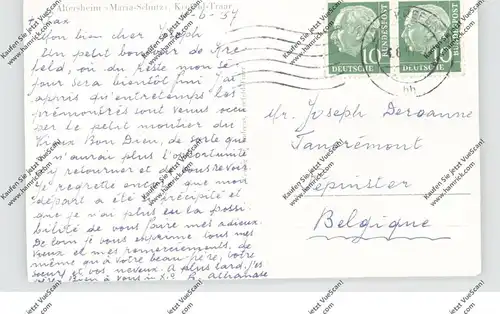 Altersheim "Maria-Schutz", Krefeld-Traar
Pax
Mon bien cher Joseph
Un petit bonjour de Kre-
feld, où du reste mon sé-
jour sera bientôt fini. J'ai
appris qu'entretemps les
prémontrés sont venus occu
per le petit moutier du
Vieux Bon Dieu, de sorte que
je n'aurai plus l'opportunité
d'y retourner et de vous revoir.
Je regrette encore que mon
départ a été si précipité et
que je n'ai plus eu la possi
bilité de vous faire mes adieux.
De loin je vous exprime tous mes
vœux et mes remerciements, de
même qu'à votre beau-père, votre
sœur et vos neveux. A plus tard,
bien à vous in X° R. Athanase
DEUTSCHE 10 BUNDESPOST
DEUTSCHE 10 BUNDESPOST
Mr. Joseph Deroanne
Tancrémont
Pepinster
Belgique
Kaufen Sie jetzt VueScan!
www.hamrick.com